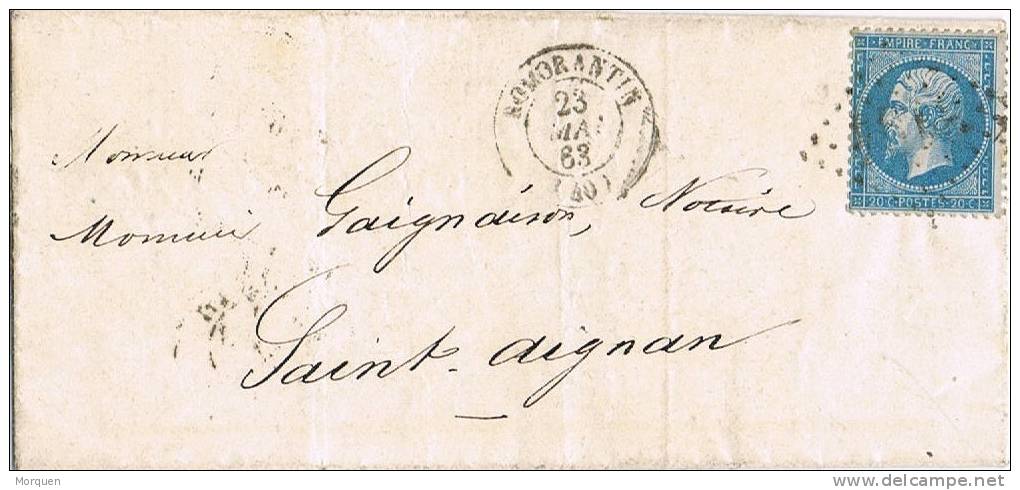 EMPIRE FRANC
ROMORANTIN
23
MAI
63
(40)
20 C POSTES 20 C
Monsieur
Monsieur Gaignaison, Notaire
Saint-aignan
Morquen
delcampe.net